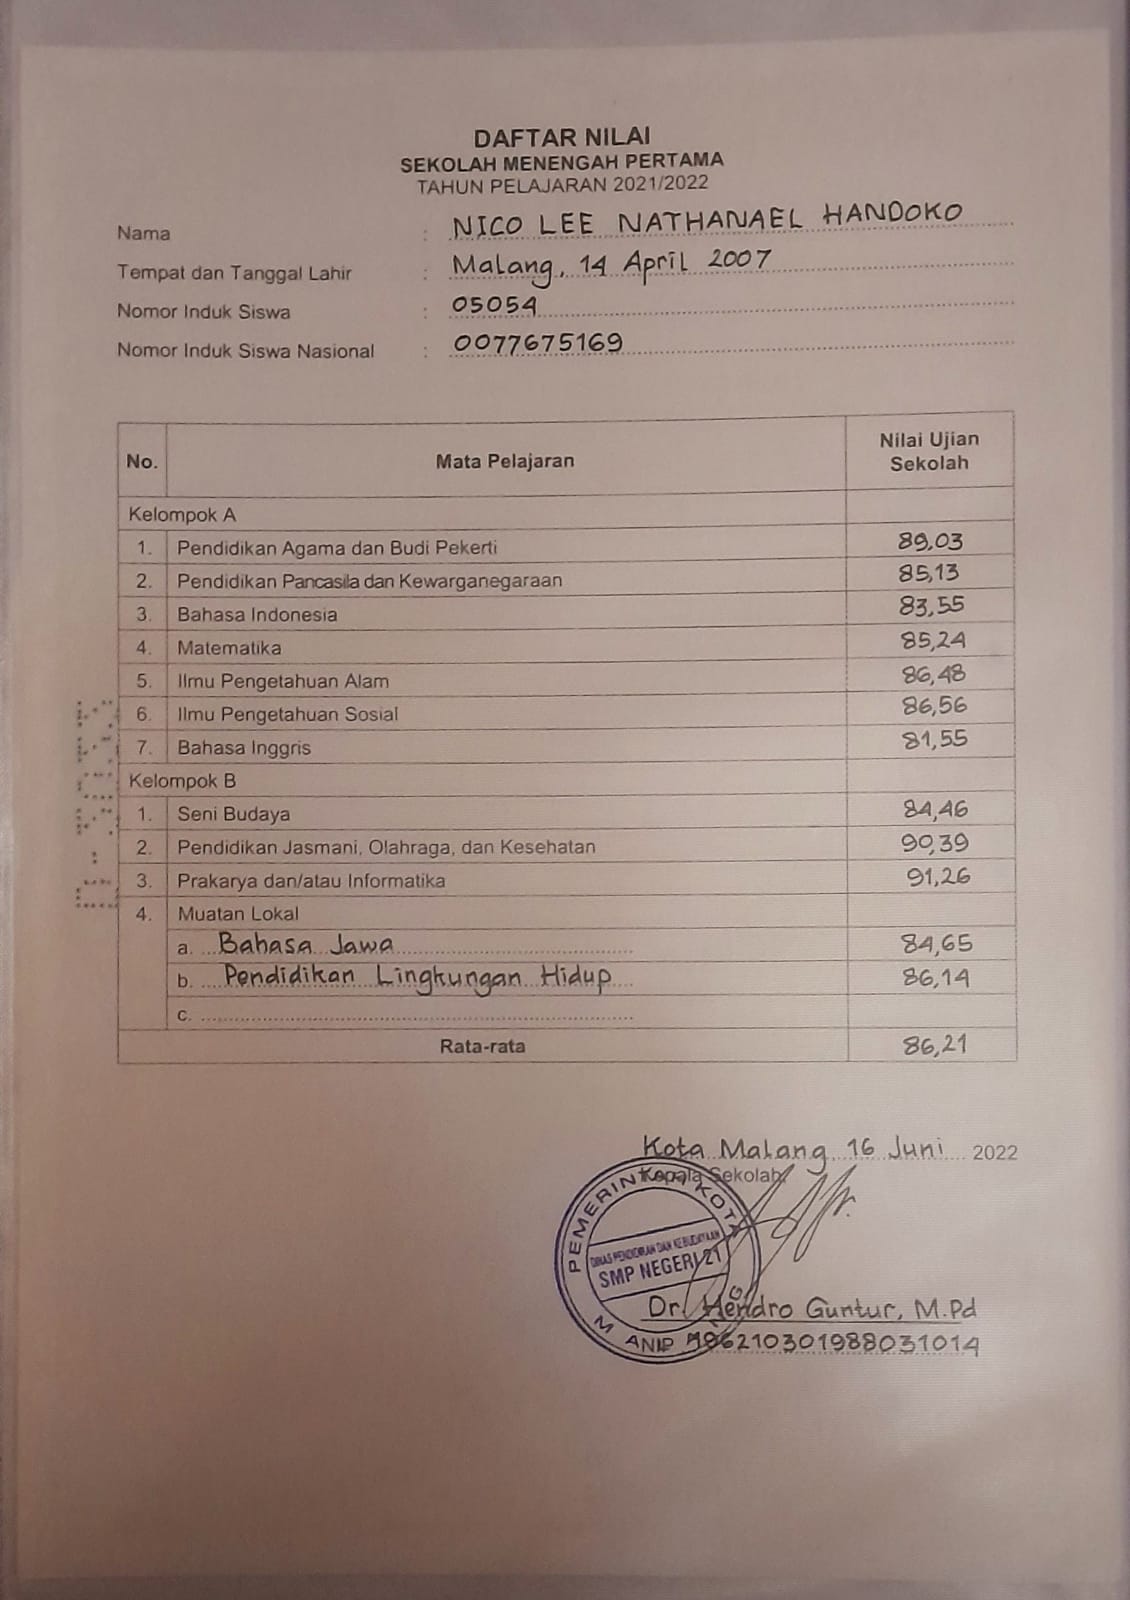 DAFTAR NILAI
SEKOLAH MENENGAH PERTAMA
TAHUN PELAJARAN 2021/2022
Nama : NICO LEE NATHANAEL HANDOKO
Tempat dan Tanggal Lahir : Malang, 14 April 2007
Nomor Induk Siswa : 05054
Nomor Induk Siswa Nasional : 0077675169
No. Mata Pelajaran Nilai Ujian Sekolah
Kelompok A
1. Pendidikan Agama dan Budi Pekerti 89,03
2. Pendidikan Pancasila dan Kewarganegaraan 85,13
3. Bahasa Indonesia 83,55
4. Matematika 85,24
5. Ilmu Pengetahuan Alam 86,48
6. Ilmu Pengetahuan Sosial 86,56
7. Bahasa Inggris 81,55
Kelompok B
1. Seni Budaya 84,46
2. Pendidikan Jasmani, Olahraga, dan Kesehatan 90,39
3. Prakarya dan/atau Informatika 91,26
4. Muatan Lokal
a. Bahasa Jawa 84,65
b. Pendidikan Lingkungan Hidup 86,14
c.
Rata-rata 86,21
Kota Malang, 16 Juni 2022
Kepala Sekolah,
PEMERINTAH KOTA MALANG
DINAS PENDIDIKAN DAN KEBUDAYAAN
SMP NEGERI 21
Dr. Hendro Guntur, M.Pd
NIP 196210301988031014